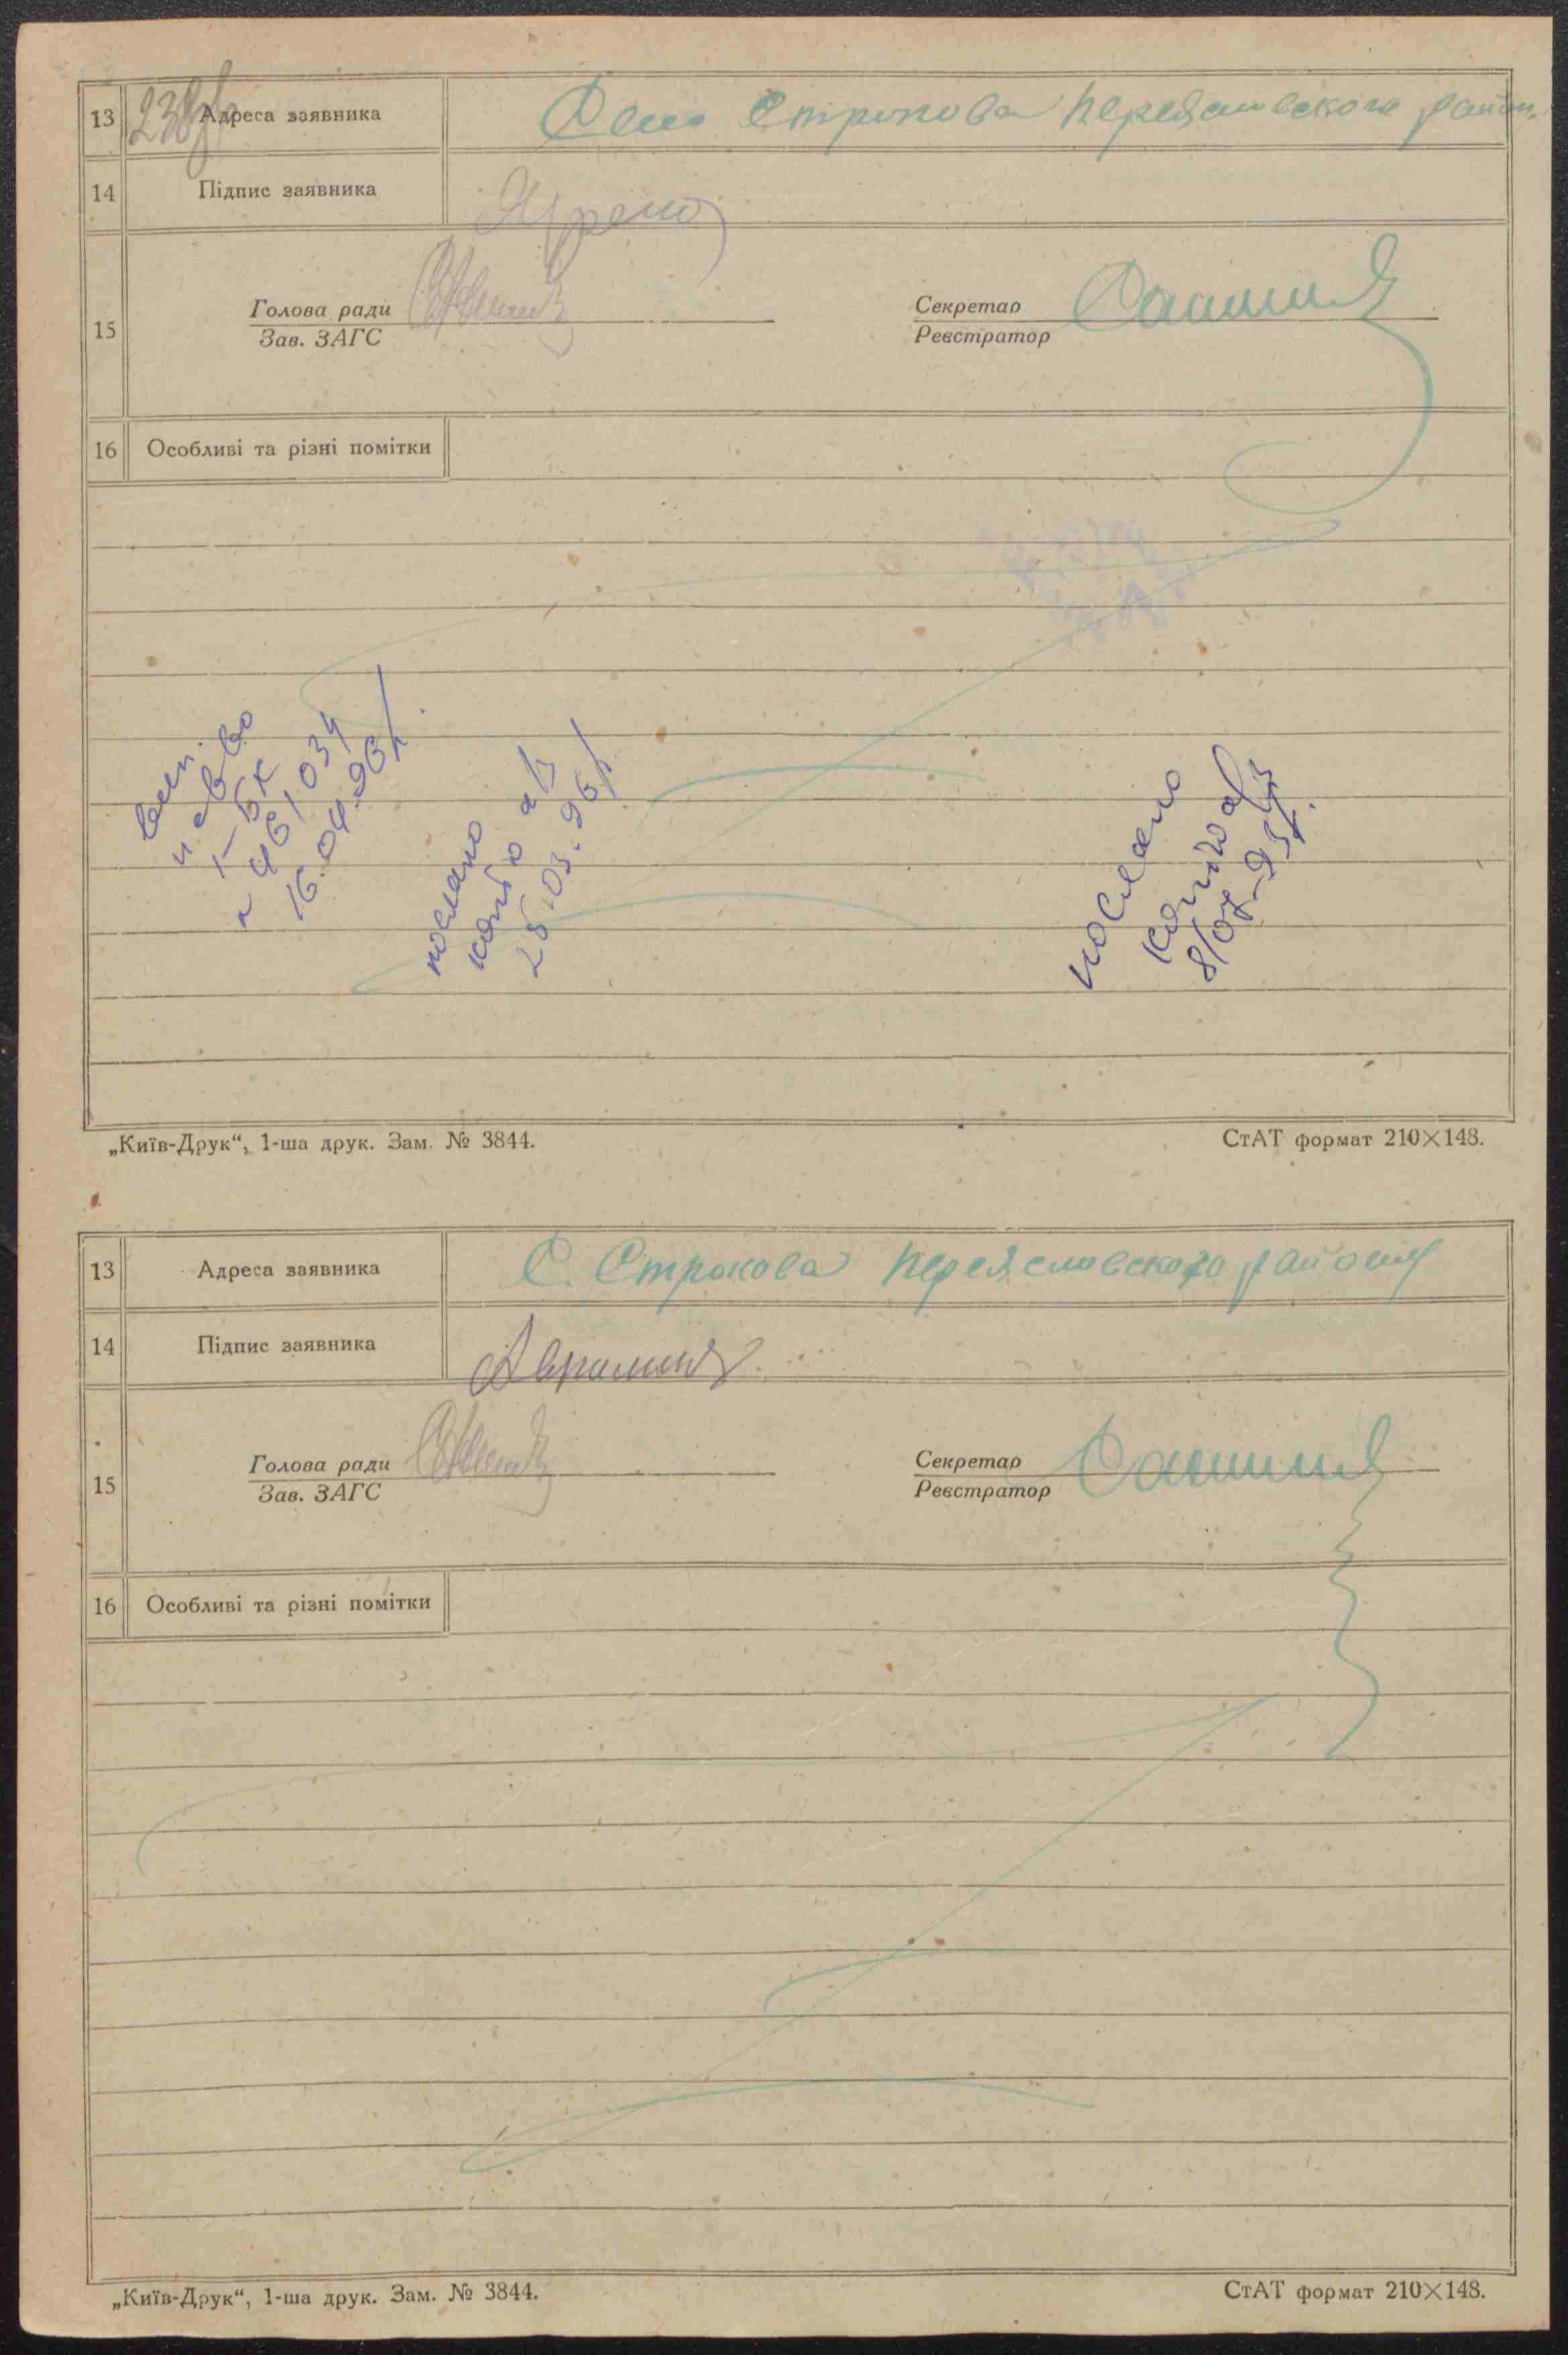 13 Адреса заявника Село Строкова Переяславского район.
14 Підпис заявника
15 Голова ради Секретар
Зав. ЗАГС Реєстратор
16 Особливі та різні помітки
вип.
I-БК
461034
16.04.96
послано
копію а/з
25.03.96
послано
копію а/з
„Київ-Друк“, 1-ша друк. Зам. № 3844. СтАТ формат 210×148.
13 Адреса заявника С. Строкова Переяславского району
14 Підпис заявника
15 Голова ради Секретар
Зав. ЗАГС Реєстратор
16 Особливі та різні помітки
„Київ-Друк“, 1-ша друк. Зам. № 3844. СтАТ формат 210×148.